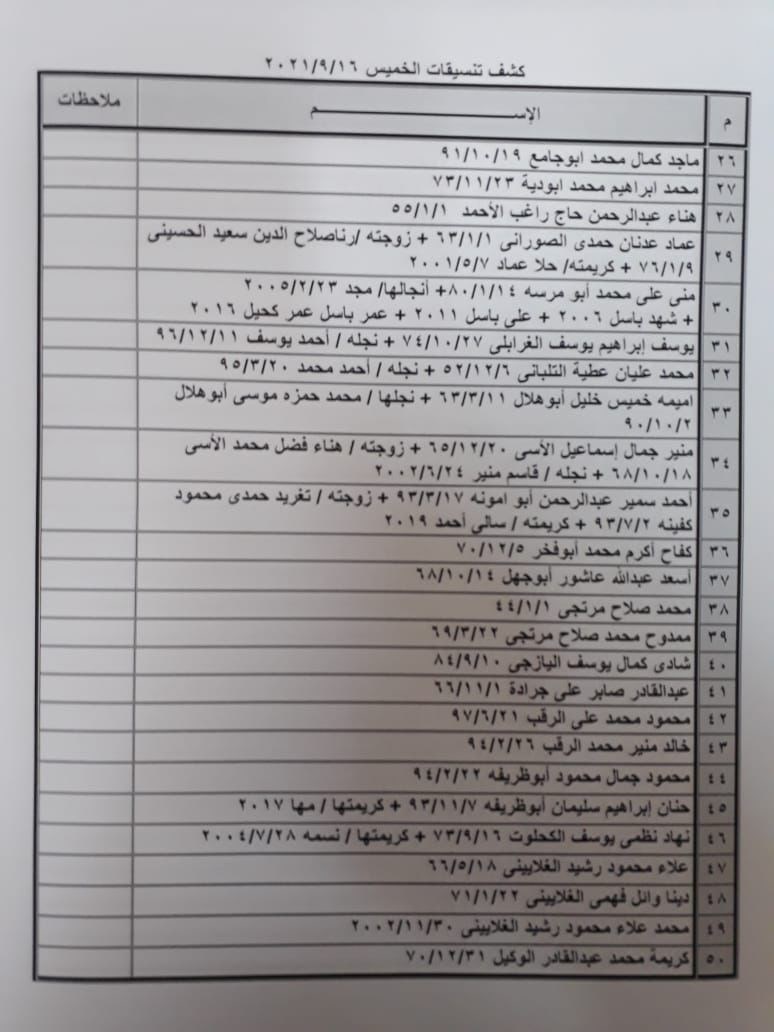 كشف تنسيقات الخميس ٢٠٢١/٩/١٦
م الإســـــــــــم ملاحظات
٢٦ ماجد كمال محمد ابوجامع ٩١/١٠/١٩
٢٧ محمد ابراهيم محمد ابودية ٧٣/١١/٢٣
٢٨ هناء عبدالرحمن حاج راغب الأحمد ٥٥/١/١
٢٩ عماد عدنان حمدى الصورانى ٦٣/١/١ + زوجته /رناصلاح الدين سعيد الحسينى
٧٦/١/٩ + كريمته/ حلا عماد ٢٠٠١/٥/٧
٣٠ منى على محمد أبو مرسه ٨٠/١/١٤+ أنجالها/ مجد ٢٠٠٥/٢/٢٣
+ شهد باسل ٢٠٠٦ + على باسل ٢٠١١ + عمر باسل عمر كحيل ٢٠١٦
٣١ يوسف إبراهيم يوسف الغرابلى ٧٤/١٠/٢٧ + نجله / أحمد يوسف ٩٦/١٢/١١
٣٢ محمد عليان عطية التلبانى ٥٢/١٢/٦ + نجله / أحمد محمد ٩٥/٣/٢٠
٣٣ اميمه خميس خليل أبوهلال ٦٣/٣/١١ + نجلها / محمد حمزه موسى أبوهلال
٩٠/١٠/٢
٣٤ منير جمال إسماعيل الأسى ٦٥/١٢/٢٠ + زوجته / هناء فضل محمد الأسى
٦٨/١٠/١٨ + نجله / قاسم منير ٢٠٠٢/٦/٢٤
٣٥ أحمد سمير عبدالرحمن أبو امونه ٩٣/٣/١٧ + زوجته / تغريد حمدى محمود
كفينه ٩٣/٧/٢ + كريمته / سالي أحمد ٢٠١٩
٣٦ كفاح أكرم محمد أبوفخر ٧٠/١٢/٥
٣٧ أسعد عبدالله عاشور أبوجهل ٦٨/١٠/١٤
٣٨ محمد صلاح مرتجى ٤٤/١/١
٣٩ ممدوح محمد صلاح مرتجى ٦٩/٣/٢٢
٤٠ شادى كمال يوسف اليازجى ٨٤/٩/١٠
٤١ عبدالقادر صابر على جرادة ٦٦/١١/١
٤٢ محمود محمد على الرقب ٩٧/٦/٢١
٤٣ خالد منير محمد الرقب ٩٤/٢/٢٦
٤٤ محمود جمال محمود أبوظريفه ٩٤/٢/٢٢
٤٥ حنان إبراهيم سليمان أبوظريفه ٩٣/١١/٧ + كريمتها / مها ٢٠١٧
٤٦ نهاد نظمى يوسف الكحلوت ٧٣/٩/١٦ + كريمتها / نسمه ٢٠٠٤/٧/٢٨
٤٧ علاء محمود رشيد الغلايينى ٦٦/٥/١٨
٤٨ دينا وائل فهمى الغلايينى ٧١/١/٢٢
٤٩ محمد علاء محمود رشيد الغلايينى ٢٠٠٢/١١/٣٠
٥٠ كريمة محمد عبدالقادر الوكيل ٧٠/١٢/٣١